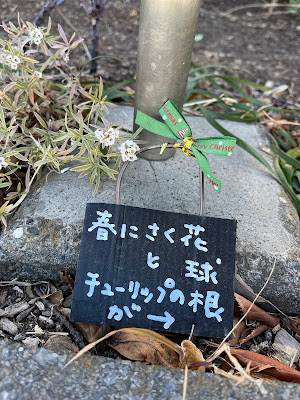 Merry Christ
春にさく花
と 球
チューリップの根
が→